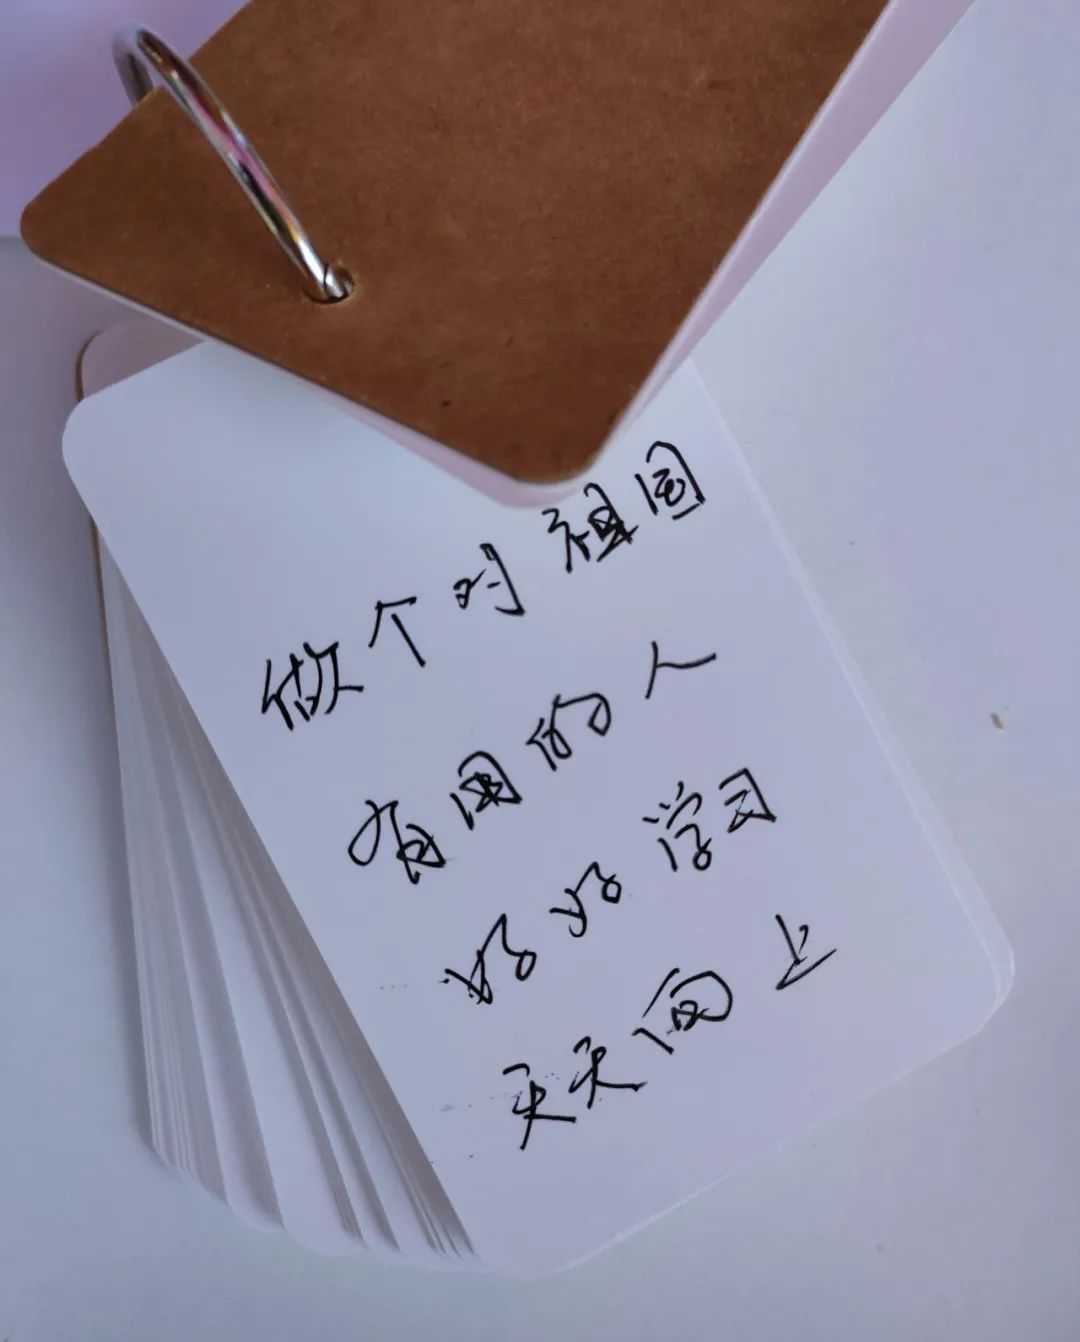 做个对祖国
有用的人
好好学习
天天向上